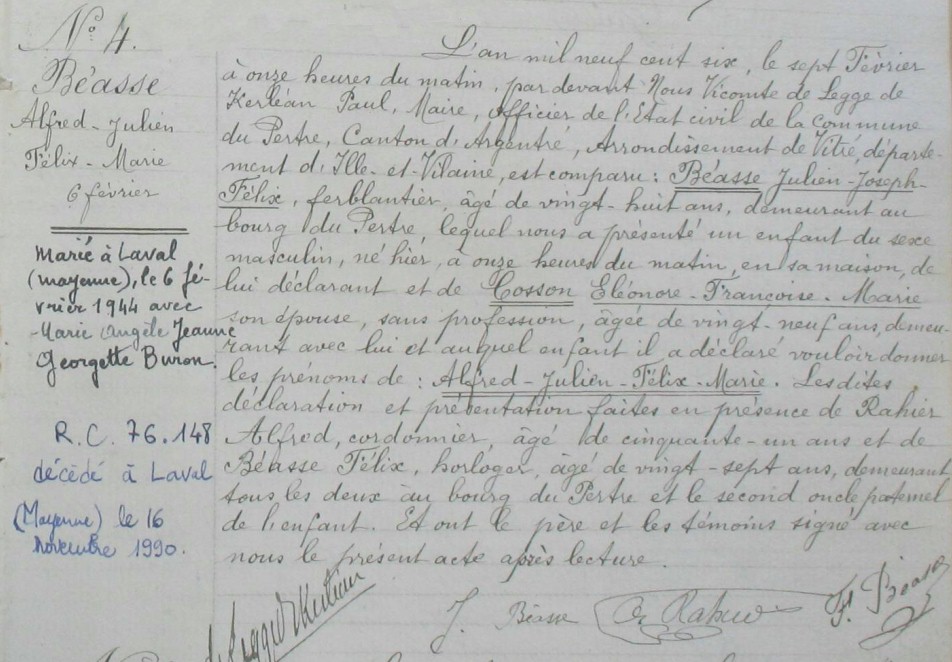 N° 4.
Béasse
Alfred - Julien
Félix - Marie
6 février
Marié à Laval
(Mayenne), le 6 fé-
vrier 1944 avec
Marie Angèle Jeanne
Georgette Buron.
R.C. 76.148
décédé à Laval
(Mayenne) le 16
novembre 1990.
L'an mil neuf cent six, le sept Février
à onze heures du matin, par devant Nous Vicomte de Legge de
Kerléan Paul, Maire, Officier de l'Etat civil de la Commune
du Pertre, Canton d'Argentré, Arrondissement de Vitré, départe-
ment d'Ille-et-Vilaine, est comparu : Béasse Julien-Joseph-
Félix, ferblantier, âgé de vingt-huit ans, demeurant au
bourg du Pertre, lequel nous a présenté un enfant du sexe
masculin, né hier, à onze heures du matin, en sa maison, de
lui déclarant et de Cosson Eléonore-Françoise-Marie
son épouse, sans profession, âgée de vingt-neuf ans, demeu-
rant avec lui et auquel enfant il a déclaré vouloir donner
les prénoms de : Alfred-Julien-Félix-Marie. Lesdites
déclaration et présentation faites en présence de Rahier
Alfred, cordonnier, âgé de cinquante-un ans et de
Béasse Félix, horloger, âgé de vingt-sept ans, demeurant
tous les deux au bourg du Pertre et le second oncle paternel
de l'enfant. Et ont le père et les témoins signé avec
nous le présent acte après lecture.
de Legge de Kerléan
J. Béasse
A. Rahier
F. Béasse